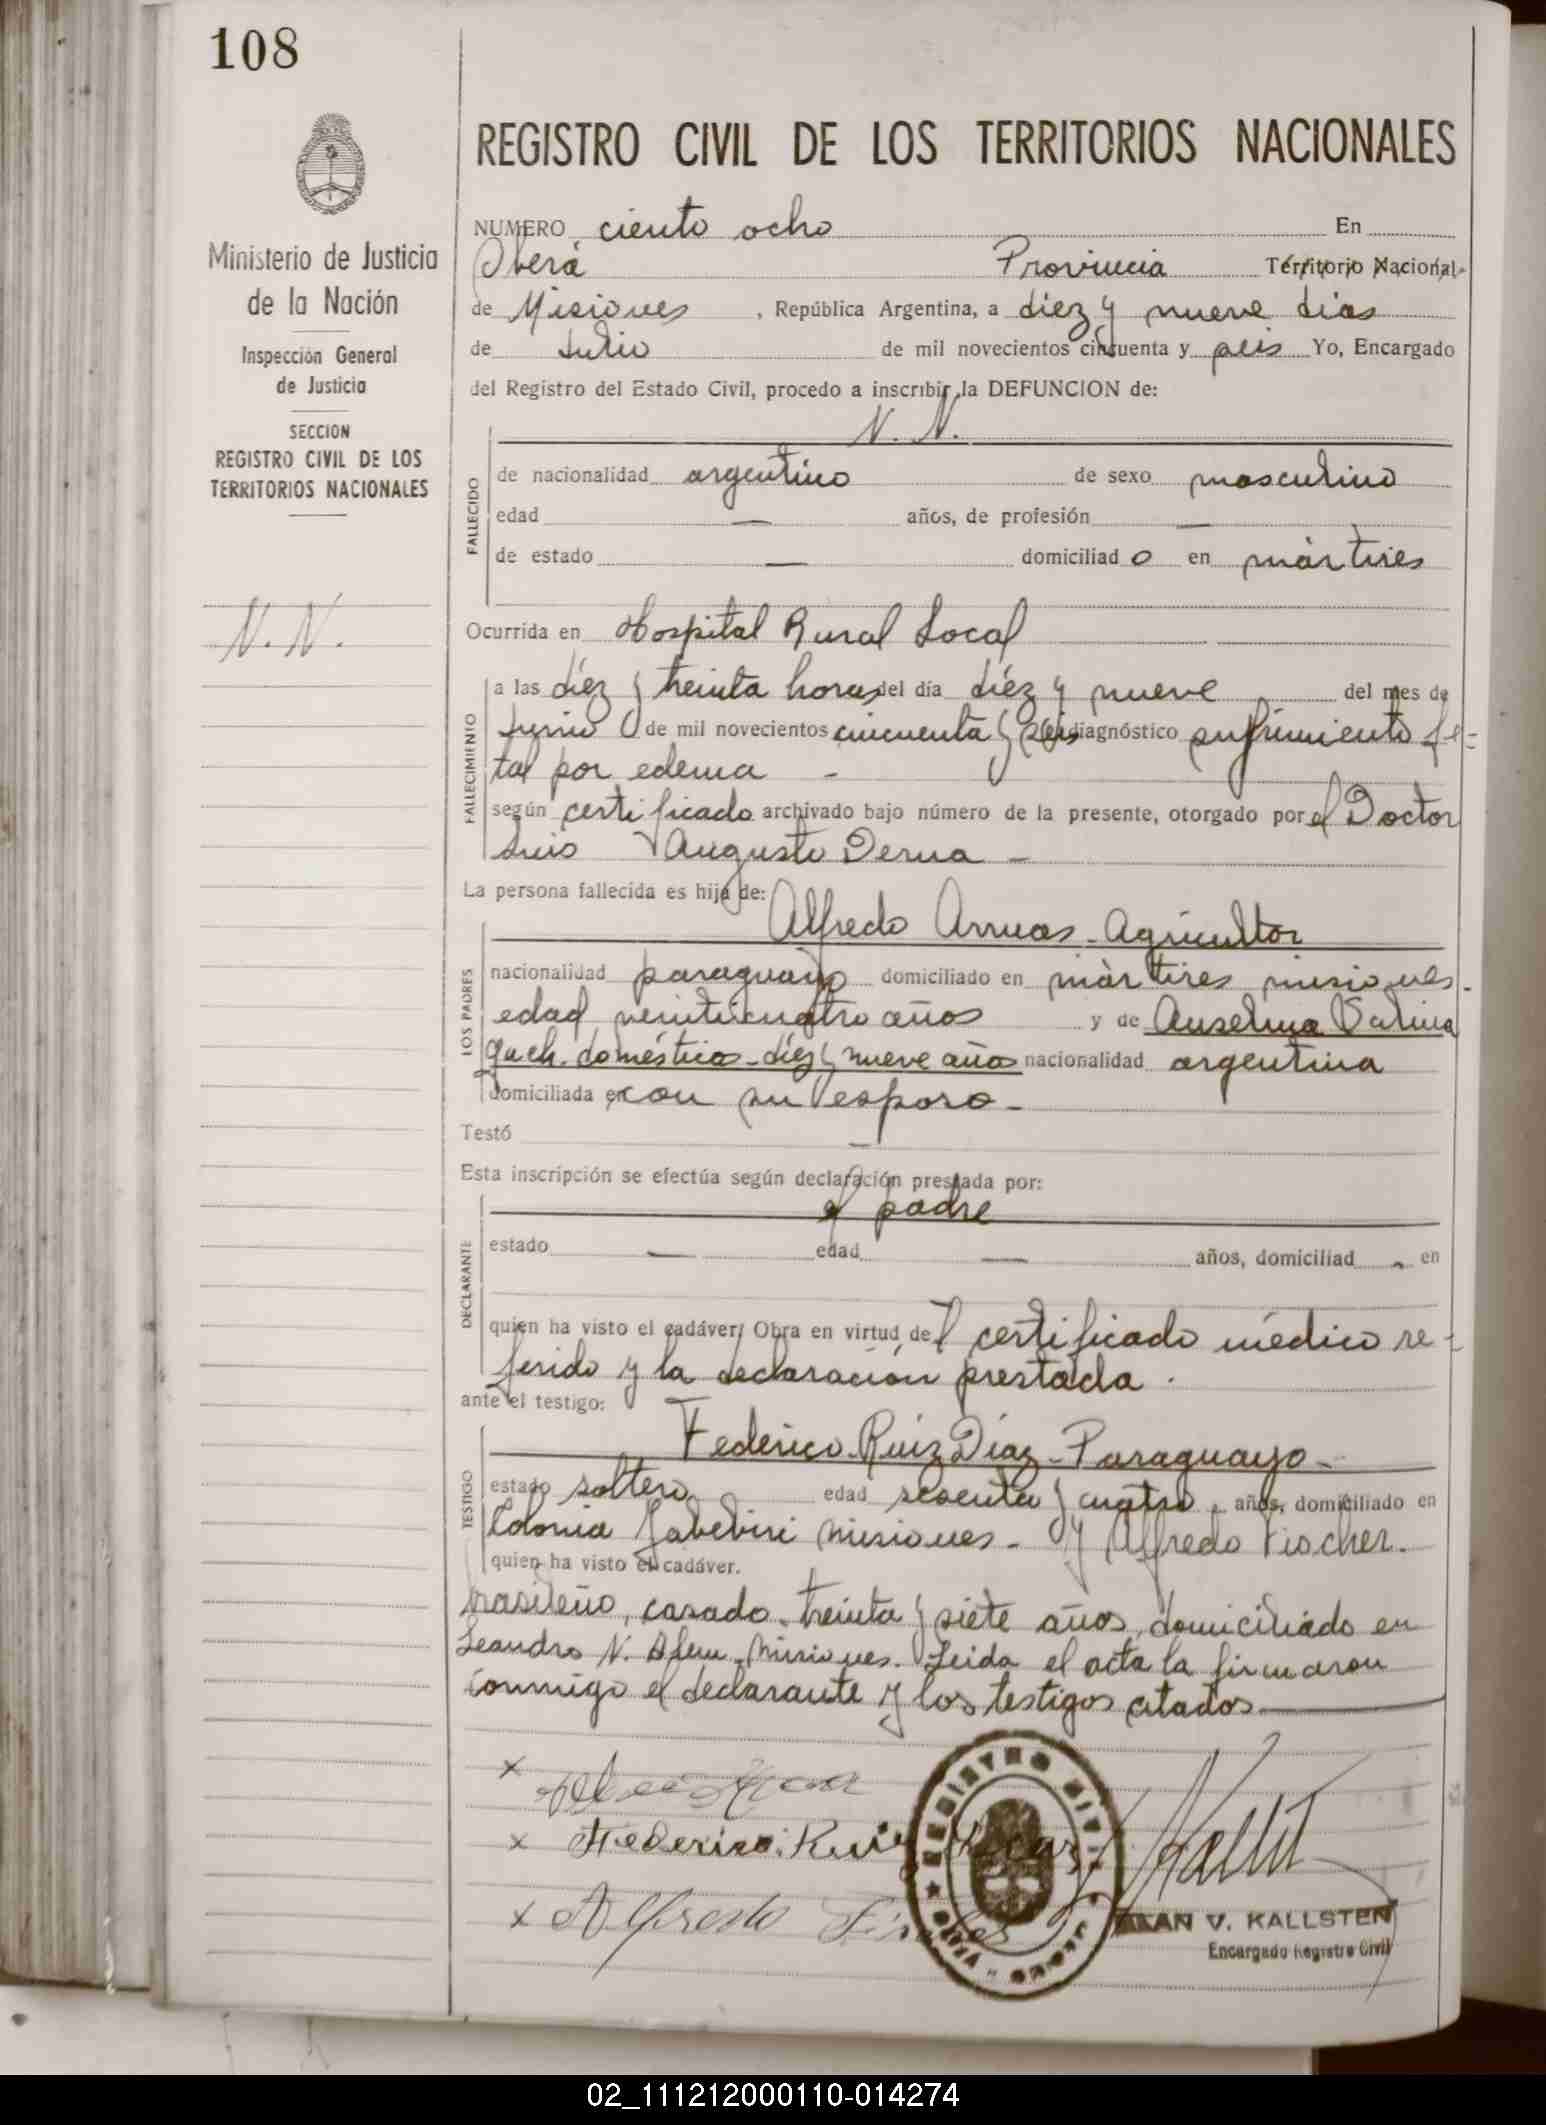 108
REGISTRO CIVIL DE LOS TERRITORIOS NACIONALES
Ministerio de Justicia
de la Nación
Inspección General
de Justicia
SECCION
REGISTRO CIVIL DE LOS
TERRITORIOS NACIONALES
N. N.
NUMERO ciento ocho En
Oberá Provincia Territorio Nacional
de Misiones , República Argentina, a diez y nueve dias
de Julio de mil novecientos cincuenta y seis Yo, Encargado
del Registro del Estado Civil, procedo a inscribir la DEFUNCION de:
N. N.
FALLECIDO
de nacionalidad argentino de sexo masculino
edad — años, de profesión —
de estado — domiciliad o en màrtires
Ocurrida en Hospital Rural Local
FALLECIMIENTO
a las diez y treinta horas del día diéz y nueve del mes de
Junio de mil novecientos cincuenta y seis diagnóstico sufrimiento fe-
tal por edema -
según certificado archivado bajo número de la presente, otorgado por el Doctor
Luis Augusto Derna -
La persona fallecida es hijo de:
LOS PADRES
Alfredo Arruas - Agricultor
nacionalidad paraguayo domiciliado en màrtires misiones.
edad veinticuatro años y de Anselma
doméstica - diez y nueve años nacionalidad argentina
domiciliada en con su esposo -
Testó —
Esta inscripción se efectúa según declaración prestada por:
el padre
DECLARANTE
estado — edad — años, domiciliad - en
quien ha visto el cadáver; Obra en virtud del certificado médico re-
ferido y la declaración prestada.
ante el testigo:
TESTIGO
Federico Ruiz Diaz - Paraguayo -
estado soltero edad sesenta y cuatro años, domiciliado en
Colonia Yabebiri misiones - y Alfredo Fischer.
quien ha visto el cadáver.
brasileño, casado - treinta y siete años, domiciliado en
Leandro N. Alem - Misiones. Leida el acta la firmaron
conmigo el declarante y los testigos citados
x
x Federico Ruiz Diaz
x Alfredo
REGISTRO CIVIL
ALAN V. KALLSTEN
Encargado Registro Civil
02_111212000110-014274